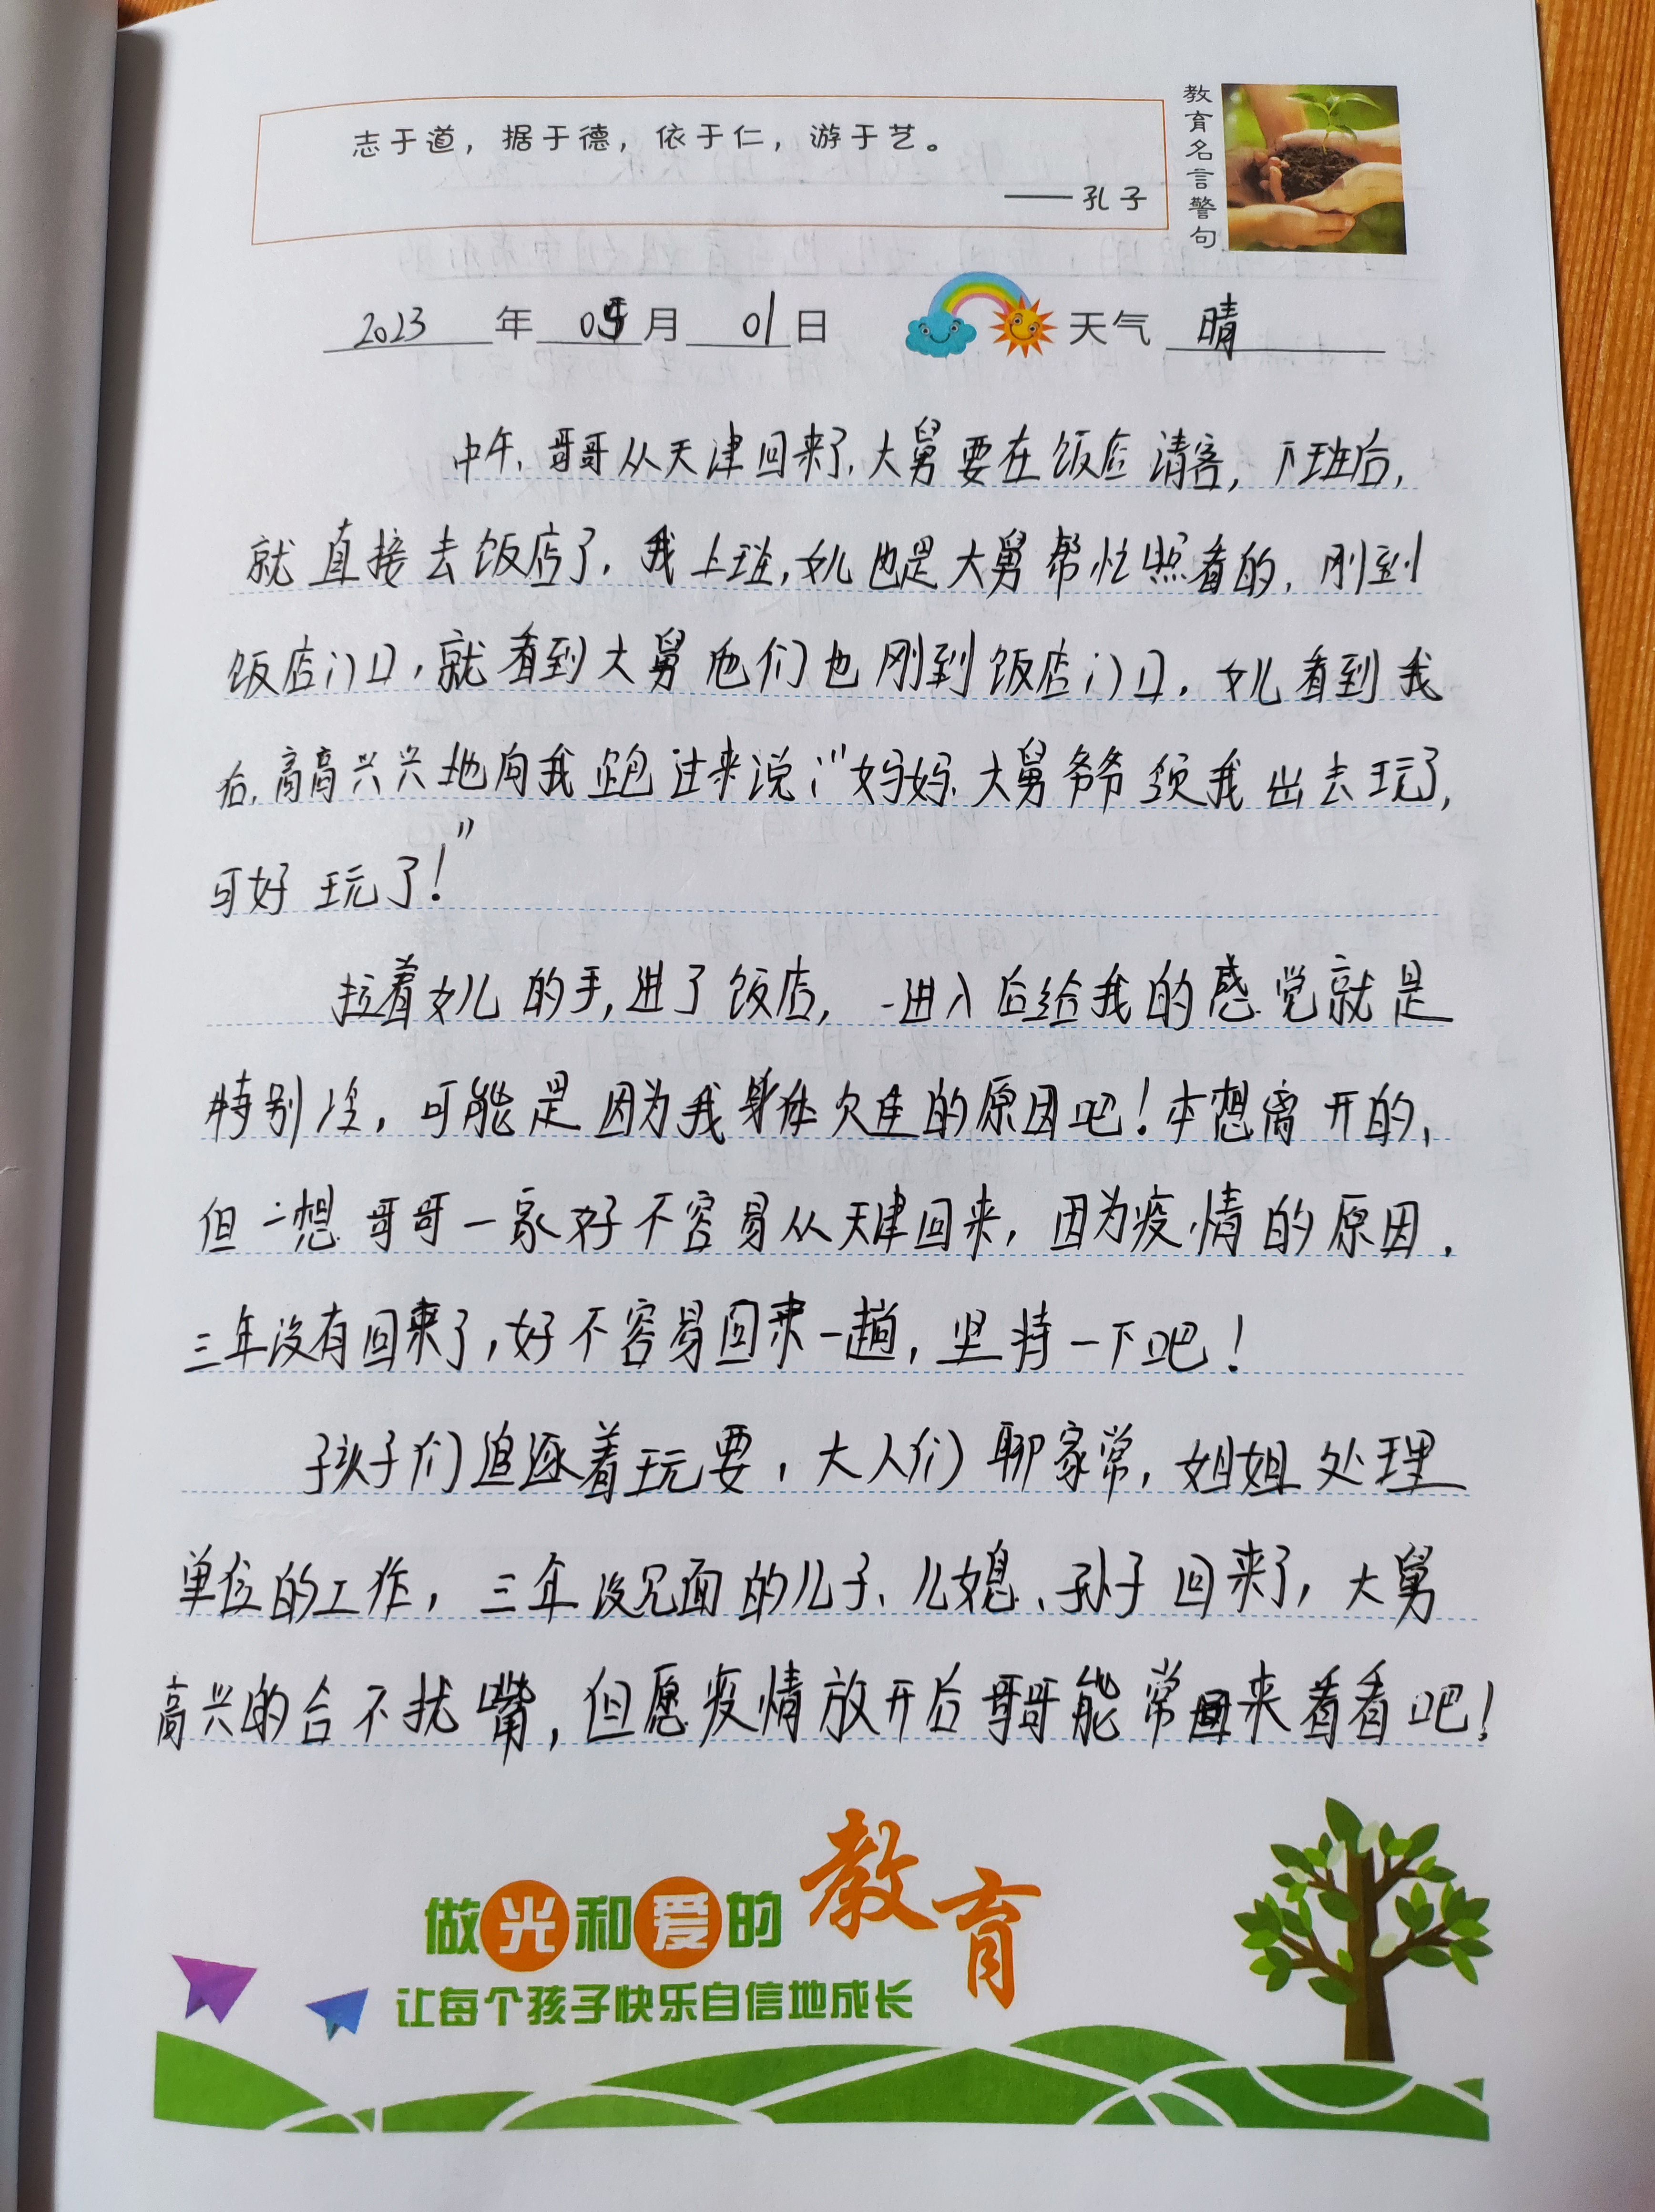 志于道，据于德，依于仁，游于艺。
——孔子
教育名言警句
2023年05月01日 天气 晴
中午，哥哥从天津回来了，大舅要在饭店请客，下班后，
就直接去饭店了，我上班，女儿也是大舅帮忙照看的，刚到
饭店门口，就看到大舅他们也刚到饭店门口，女儿看到我
后，高高兴兴地向我跑过来说：“妈妈，大舅爷爷领我出去玩了，
可好玩了！”
拉着女儿的手，进了饭店，一进入后给我的感觉就是
特别冷，可能是因为我身体欠佳的原因吧！本想离开的，
但一想哥哥一家好不容易从天津回来，因为疫情的原因，
三年没有回来了，好不容易回来一趟，坚持一下吧！
孩子们追逐着玩耍，大人们聊家常，姐姐处理
单位的工作，三年没见面的儿子、儿媳、孙子回来了，大舅
高兴的合不拢嘴，但愿疫情放开后哥哥能常回来看看吧！
做光和爱的教育
让每个孩子快乐自信地成长